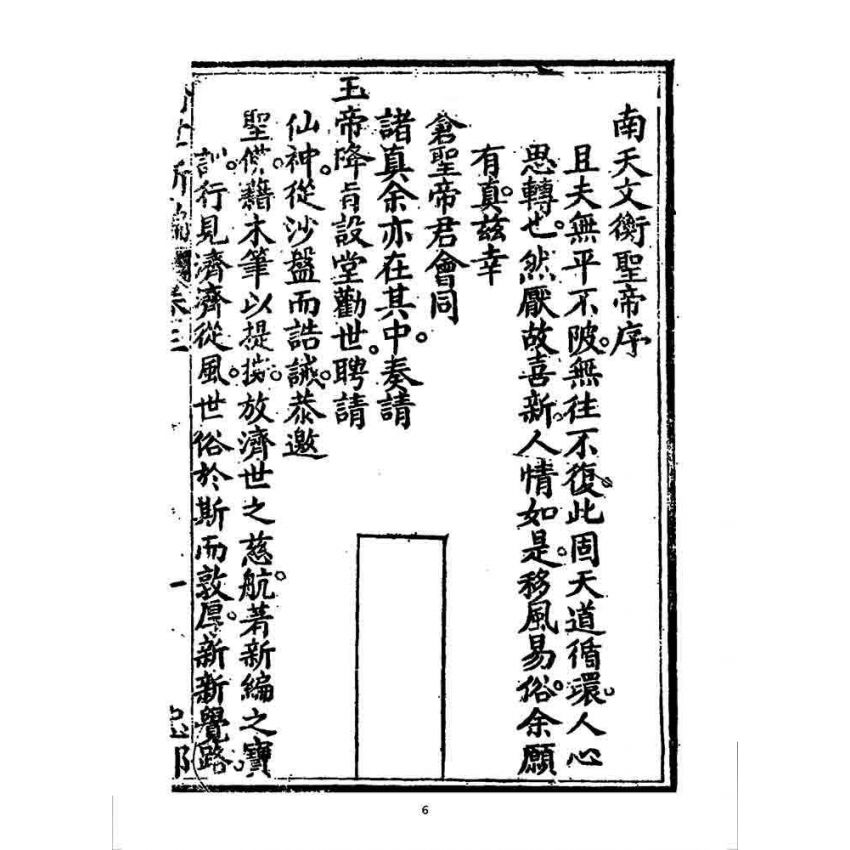 南天文衡聖帝序
且夫無平不陂。無往不復。此固天道循環。人心
思轉也。然厭故喜新。人情如是。移風易俗。余願
有真。茲幸
倉聖帝君會同
諸真余亦在其中。奏請
玉帝降旨設堂勸世。聘請
仙神。從沙盤而誥誡。恭邀
聖 藉木筆以提撕。放濟世之慈航。著新編之寶
訓。行見濟濟從風。世俗於斯而敦厚。新新覺路。
新編 卷三 一
6